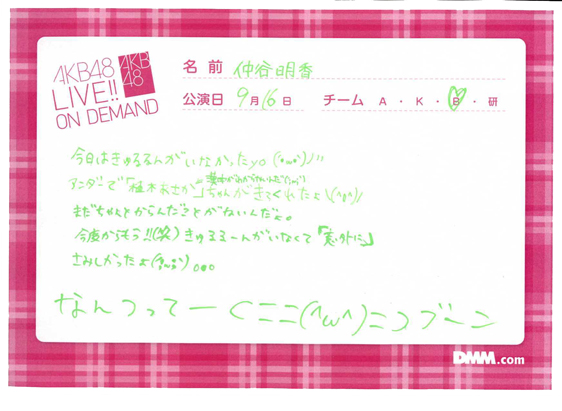 AKB48
LIVE!!
ON DEMAND
AKB
48
名前 仲谷明香
公演日 9月16日 チーム A・K・B・研
今日はきゅるるんがいなかったyo
アンダーで「植木あさか」ちゃんがきてくれたよ\(^o^)/
まだちゃんとからんだことがないんだょ。
今度からもう!!(笑)きゅるるーんがいなくて「意外に」
さみしかったよ
なんつってーC二二(^ω^)二⊃ブーン
DMM.com